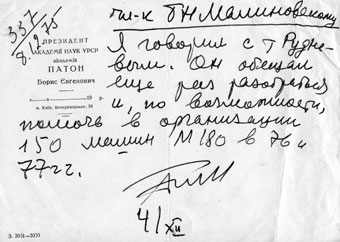 337
8.12.75
ПРЕЗИДЕНТ
АКАДЕМІЇ НАУК УРСР
академік
ПАТОН
Борис Євгенович
19 р.
м. Київ, Володимирська, 54
чл-к Б.Н. Малиновскому
Я говорил с т Рудне-
вым. Он обещал
еще раз разобраться
и, по возможности,
помочь в организации
150 машин М180 в 76 и
77 гг.
4/XII
З. 2024—2000